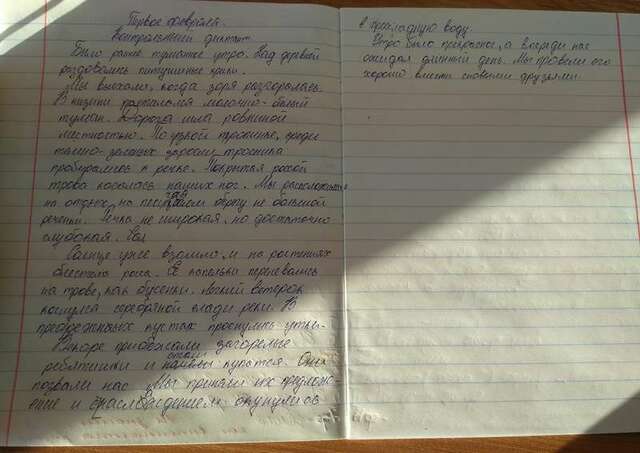 Первое февраля.
Контрольный диктант
Было раннее туманное утро. Над деревней
раздавались петушиные крики.
Мы выехали, когда заря разгоралась.
В низини растилался молочно-белый
туман. Дорога шла ровниной
местностью. По узкой тропинке, среди
темно-зеленых зарослей тросника
пробирались к речке. Покрытая росой
трава касалась наших ног. Мы расположились
на отдых на песчаном берегу не большой
речении. Речка не широкая, но достаточно
глубокая.
Солнце уже взошло, и на ростениях
блестела роса. Её капельки переливались
на траве, как бусенки. Легкий ветерок
коснулся серебряной глади реки. В
прибрежных кустах проснулись утки.
Вскоре прибежали загорелые
ребятишки и стали купатся. Они
позвали нас. Мы приняли их предлож-
ение и с наслождением окунулись
в прохладную воду.
Утро было прекрасное, а впереди нас
ожидал длинный день. Мы провели его
хорошо вместе с новыми друзьями.